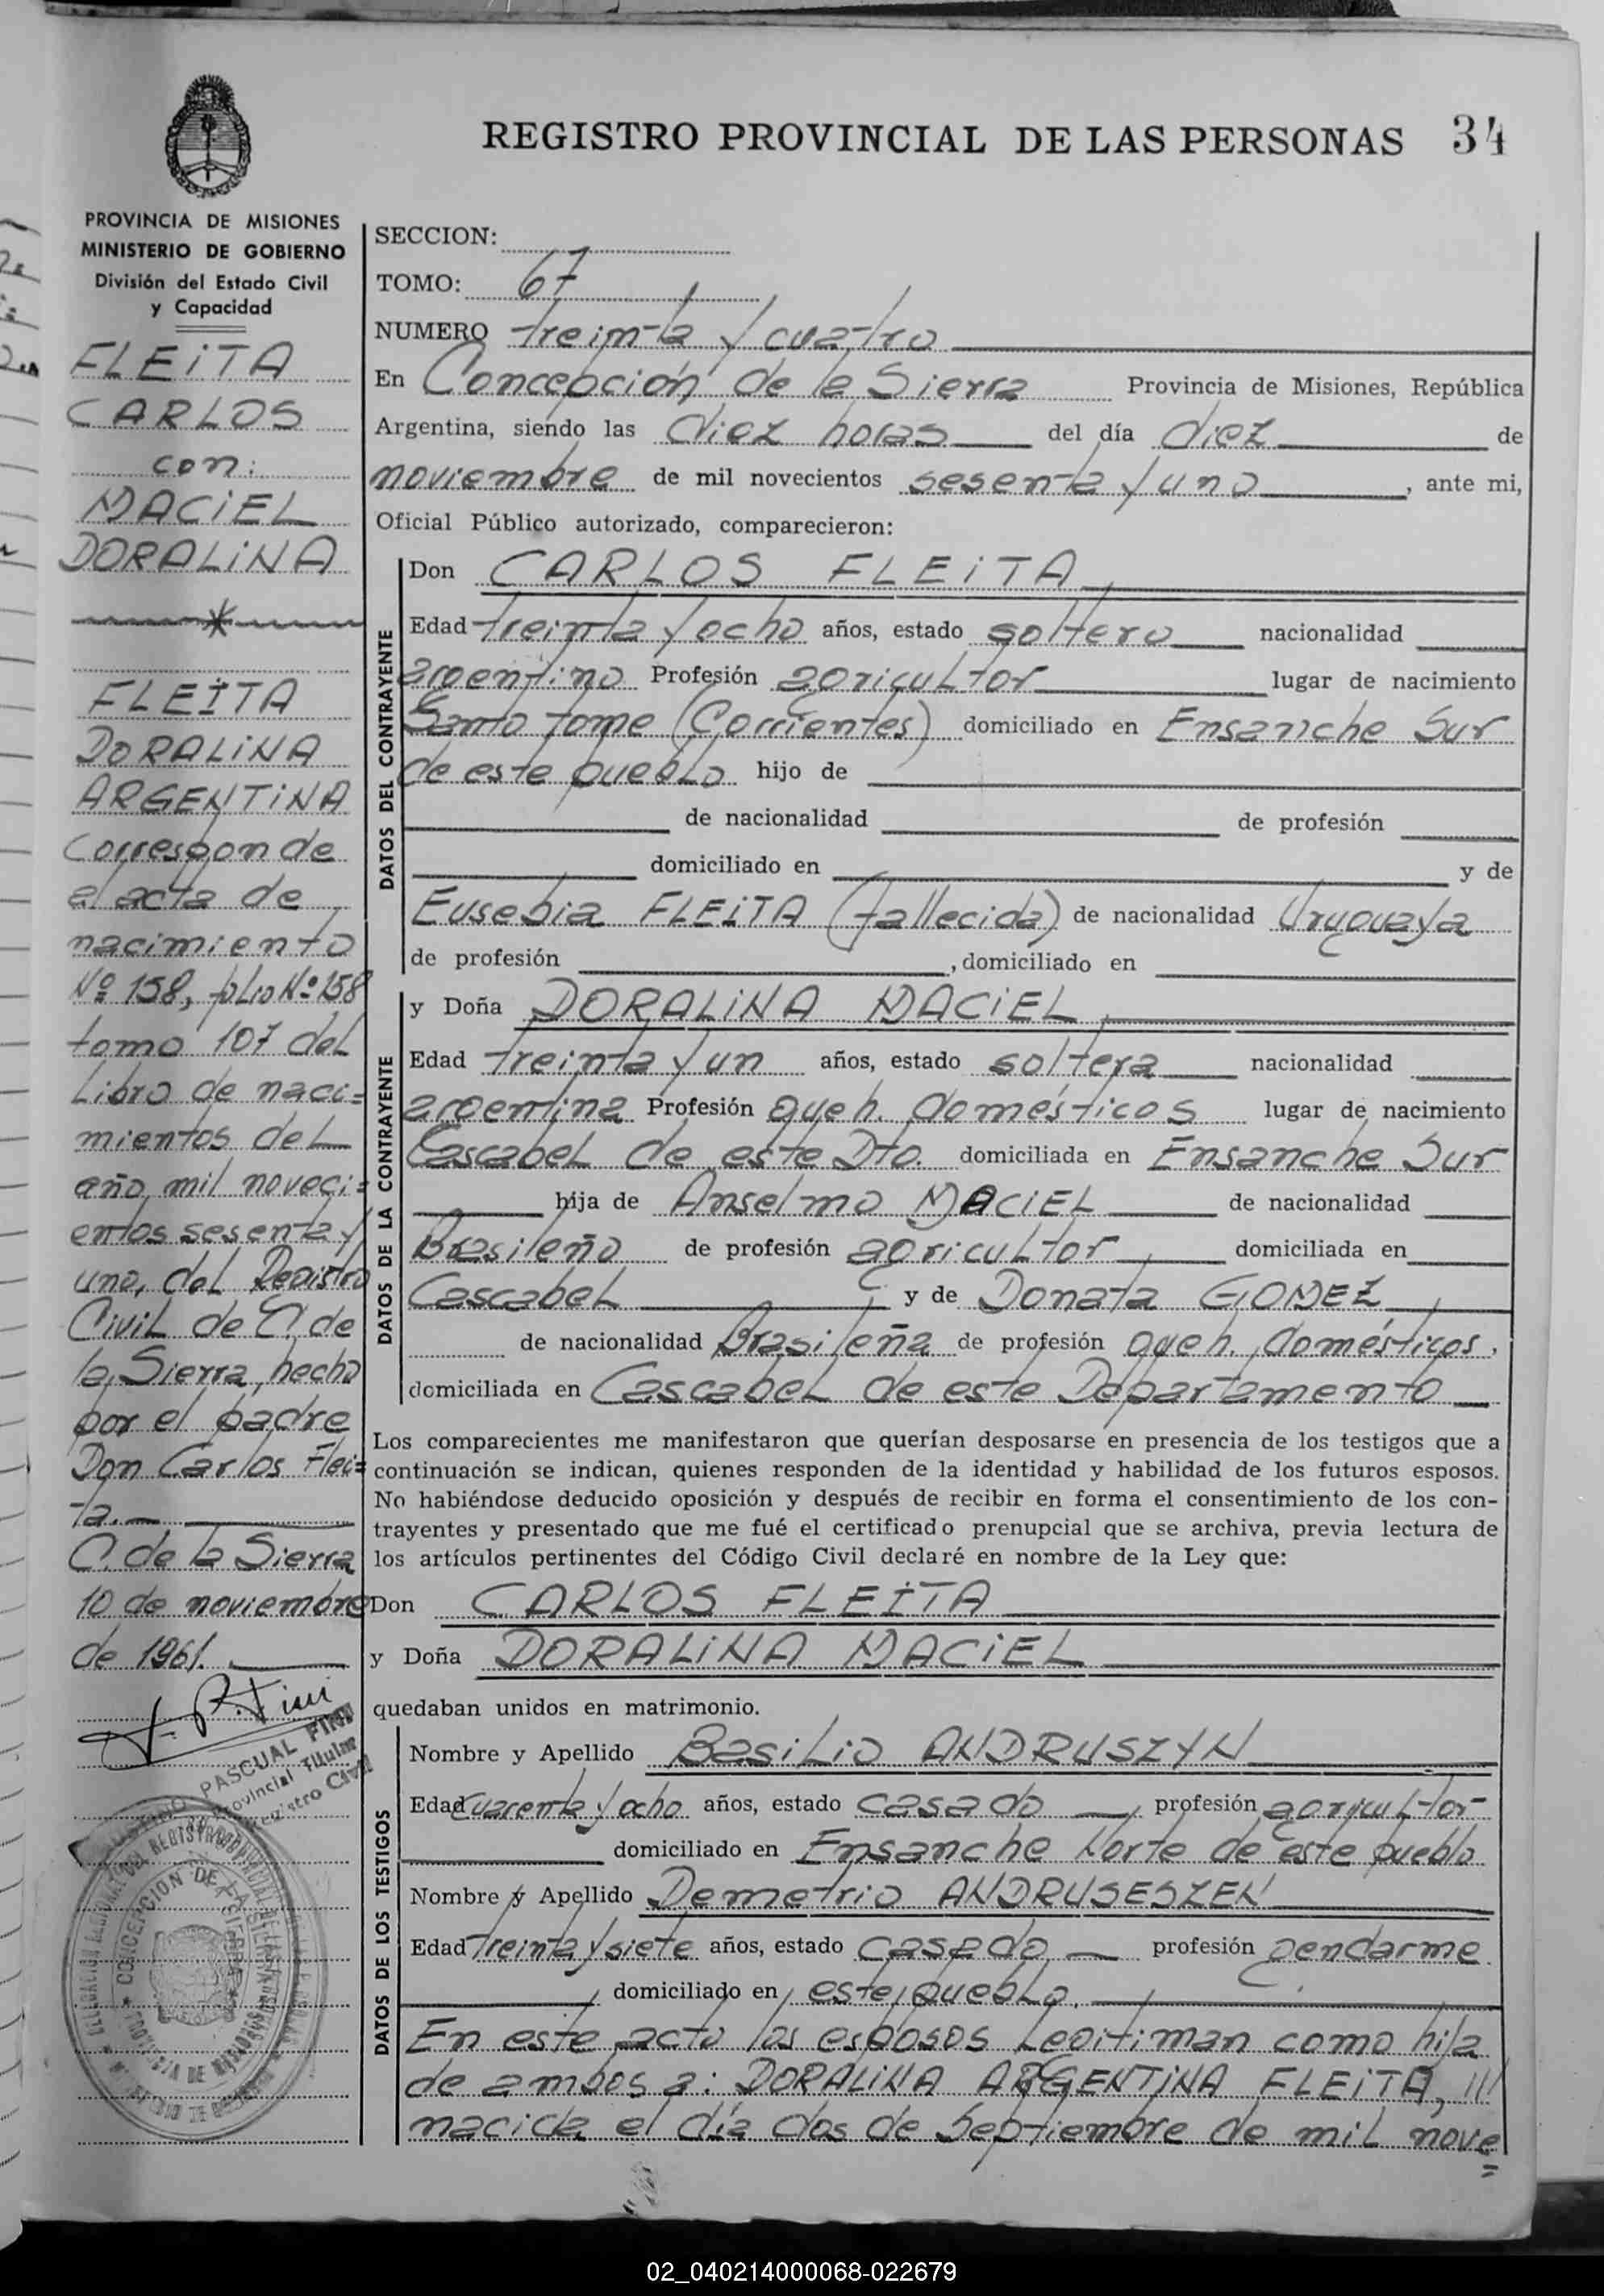 REGISTRO PROVINCIAL DE LAS PERSONAS 34
PROVINCIA DE MISIONES
MINISTERIO DE GOBIERNO
División del Estado Civil
y Capacidad
FLEITA
CARLOS
con:
MACIEL
DORALINA
FLEITA
DORALINA
ARGENTINA
Corresponde
al acta de
nacimiento
Nº 158, folio Nº 158
tomo 107 del
Libro de naci=
mientos del
año mil noveci=
entos sesenta y
uno, del Registro
Civil de C. de
la Sierra, hecho
por el padre
Don Carlos Flei=
ta.-
C. de la Sierra
10 de noviembre
de 1961.
PASCUAL FINI
Provincial Titular
Registro Civil
CONCEPCION DE LA SIERRA
PROVINCIA DE MISIONES
SECCION:
TOMO: 67
NUMERO treinta y cuatro
En Concepción de la Sierra Provincia de Misiones, República
Argentina, siendo las diez horas del día diez de
noviembre de mil novecientos sesenta y uno, ante mi,
Oficial Público autorizado, comparecieron:
DATOS DEL CONTRAYENTE
Don CARLOS FLEITA
Edad treinta y ocho años, estado soltero nacionalidad
argentino Profesión agricultor lugar de nacimiento
Santo tome (Corrientes) domiciliado en Ensanche Sur
de este pueblo hijo de
de nacionalidad de profesión
domiciliado en y de
Eusebia FLEITA (fallecida) de nacionalidad Uruguaya
de profesión , domiciliado en
DATOS DE LA CONTRAYENTE
y Doña DORALINA MACIEL
Edad treinta y un años, estado soltera nacionalidad
argentina Profesión queh. domésticos lugar de nacimiento
Cascabel de este Dto. domiciliada en Ensanche Sur
hija de Anselmo MACIEL de nacionalidad
Brasileño de profesión agricultor domiciliada en
Cascabel y de Donata GOMEZ
de nacionalidad Brasileña de profesión queh. domésticos,
domiciliada en Cascabel de este Departamento
Los comparecientes me manifestaron que querían desposarse en presencia de los testigos que a
continuación se indican, quienes responden de la identidad y habilidad de los futuros esposos.
No habiéndose deducido oposición y después de recibir en forma el consentimiento de los con-
trayentes y presentado que me fué el certificado prenupcial que se archiva, previa lectura de
los artículos pertinentes del Código Civil declaré en nombre de la Ley que:
Don CARLOS FLEITA
y Doña DORALINA MACIEL
quedaban unidos en matrimonio.
DATOS DE LOS TESTIGOS
Nombre y Apellido Basilio ANDRUSZYN
Edad cuarenta y ocho años, estado casado profesión agricultor
domiciliado en Ensanche Norte de este pueblo
Nombre y Apellido Demetrio ANDRUSESZEN
Edad treinta y siete años, estado casado profesión gendarme
domiciliado en este pueblo.
En este acto los esposos Legitiman como hija
de ambos a: DORALINA ARGENTINA FLEITA,
nacida el día dos de Septiembre de mil nove=
02_040214000068-022679